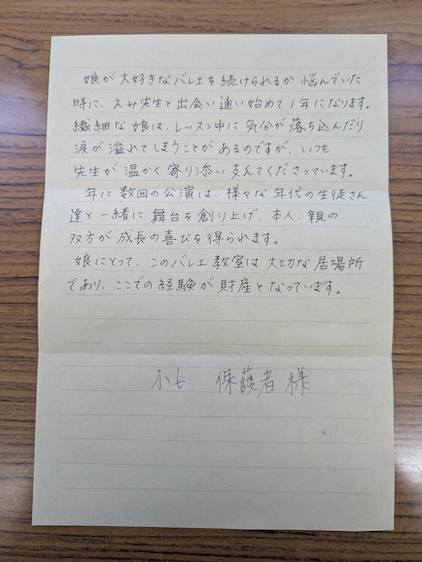 娘が大好きなバレエを続けられるか悩んでいた
時に、えみ先生と出会い通い始めて1年になります。
繊細な娘は、レッスン中に気分が落ち込んだり
涙が溢れてしまうことがあるのですが、いつも
先生が温かく寄り添い支えてくださっています。
年に数回の公演は、様々な年代の生徒さん
達と一緒に舞台を創り上げ、本人、親の
双方が成長の喜びを得られます。
娘にとって、このバレエ教室は大切な居場所
であり、ここでの経験が財産となっています。
小6 保護者様